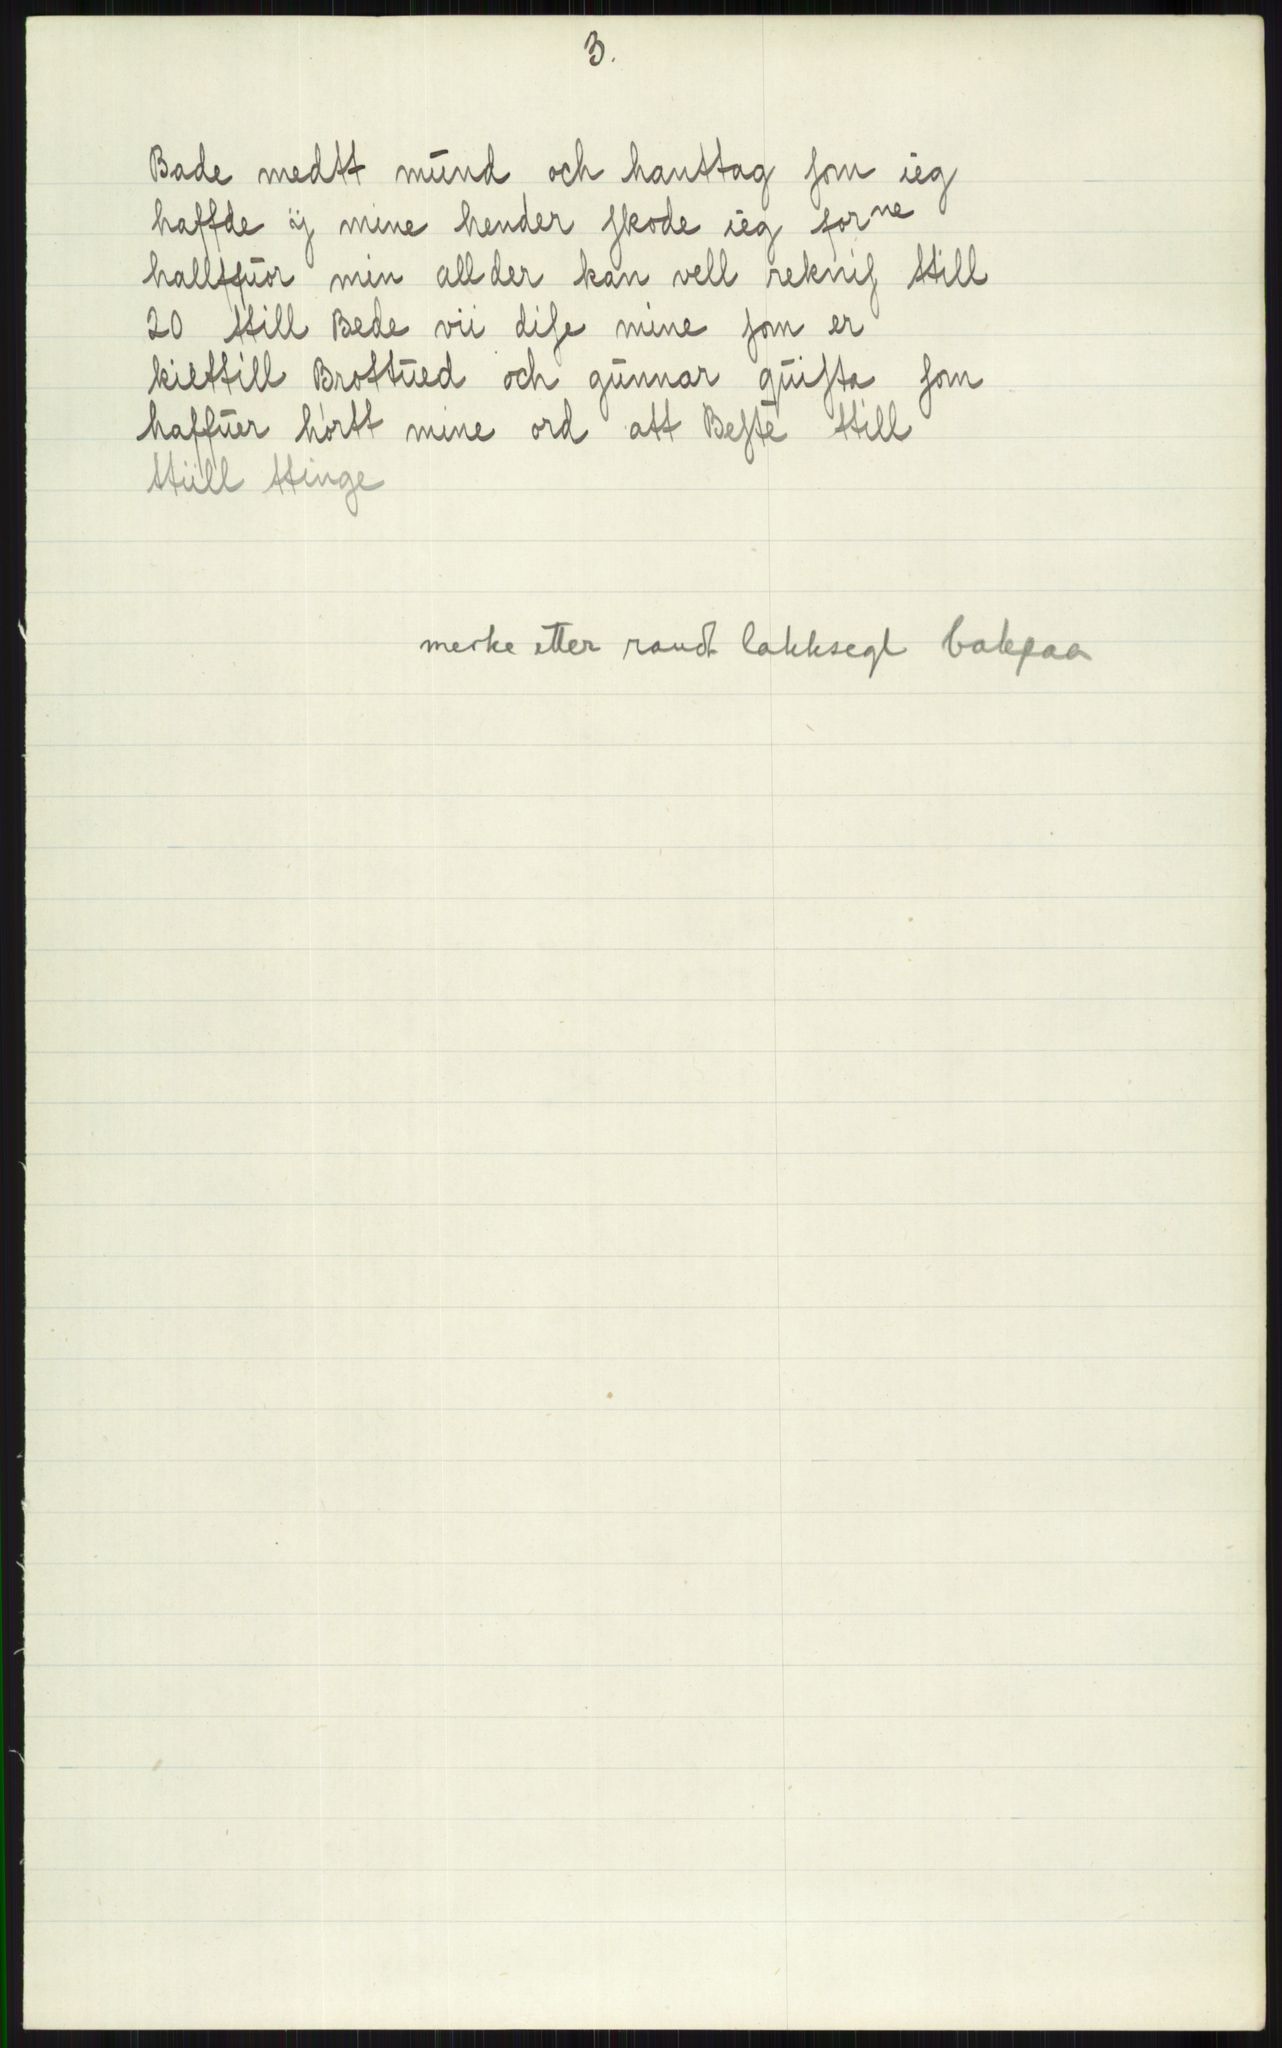 3.
Bade medtt mūnd och hanttag som ieg
haffde ÿ mine hender skode ieg forne
hallffūor min allder kan vell reknis till
20 ttill Bede vii dise mine som er
kiettill Brottūed och gūnnar qūista som
haffūer hórtt mine ord att Beste ttill
ttiill ttinge
merke etter raudt lakksegl bakpaa